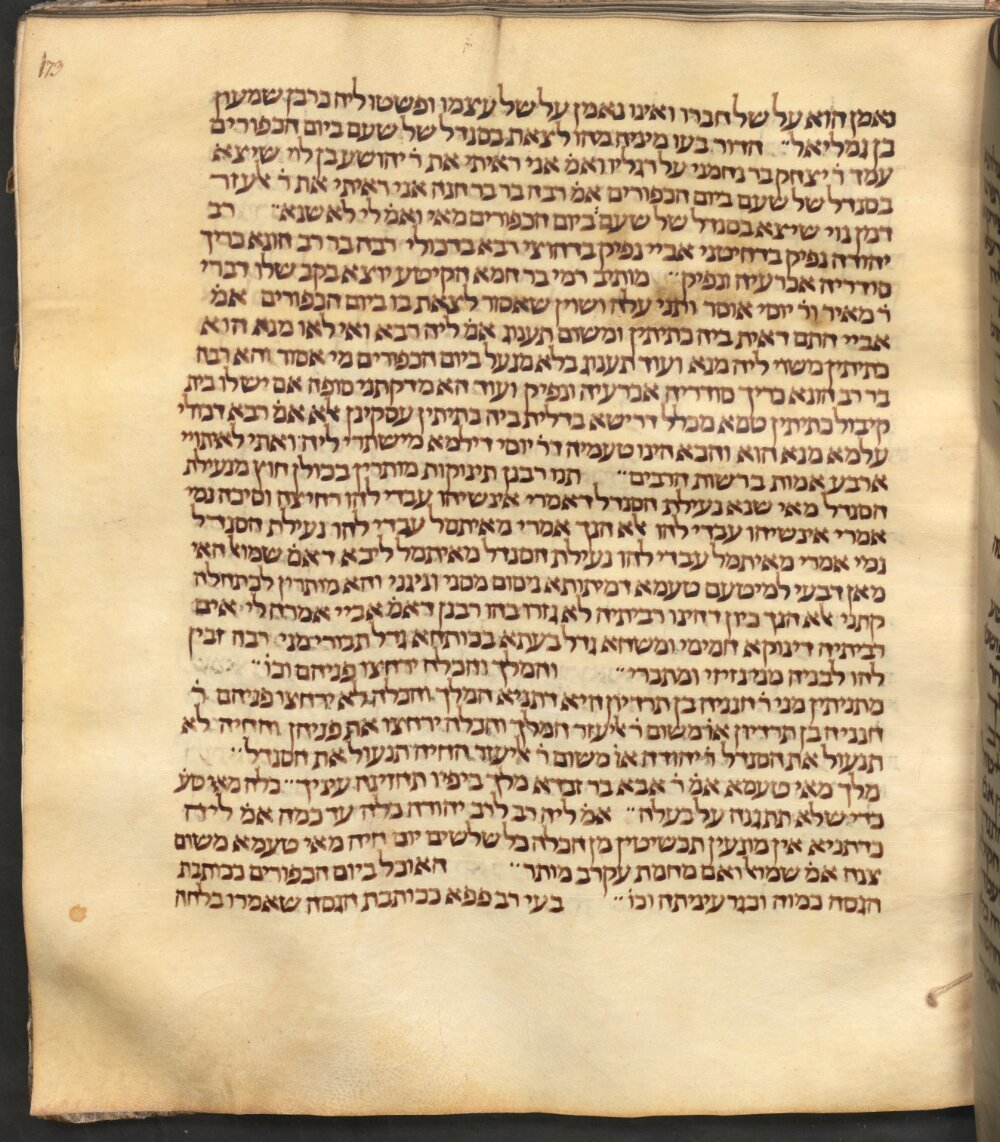 173
נאמן הוא על של חברו ואינו נאמן על של עצמו ופשטו ליה כרבן שמעון
בן גמליאל״ הדור בעו מיניה מהו לצאת בסנדל של שעם ביום הכפורים
עמד ר׳ יצחק בר נחמני על רגליו ואמ׳ אני ראיתי את ר׳ יהושע בן לוי שיצא
בסנדל של שעם ביום הכפורים אמ׳ רבה בר בר חנה אני ראיתי את ר׳ אלעזר
דמן נוי שיצא בסנדל של שעם ביום הכפורים מאי ואמ׳ לי לא שנא״ רב
יהודה נפיק בדהיטני אביי נפיק בדהוצי רבא בדבולי רבה בר רב הונא כריך
סודריה אכרעיה ונפיק״ מותיב רמי בר חמא הקיטע יוצא בקב שלו דברי
ר׳ מאיר ור׳ יוסי אוסר ותני עלה ושוין שאסור לצאת בו ביום הכפורים אמ׳
אביי התם דאית ביה כתיתין ומשום תענוג אמ׳ ליה רבא ואי לאו מנא הוא
כתיתין משוי ליה מנא ועוד תענוג בלא מנעל ביום הכפורים מי אסור והא רבה
בר רב הונא כריך סודריה אכרעיה ונפיק ועוד הא מדקתני סופה אם יש לו בית
קיבול כתיתין טמא מכלל דרישא בדלית ביה כתיתין עסקינן אלא אמ׳ רבא דכולי
עלמא מנא הוא והכא היינו טעמיה דר׳ יוסי דילמא מישתרי ליה ואתי לאתויי
ארבע אמות ברשות הרבים״ תנו רבנן תינוקות מותרין בכולן חוץ מנעילת
הסנדל מאי שנא נעילת הסנדל דאמרי אינשיהו עבדי להו רחיצה וסיכה נמי
אמרי אינשיהו עבדי להו אלא הנך אמרי מאיתמל עבדי להו נעילת הסנדל
נמי אמרי מאיתמל עבדי להו נעילת הסנדל מאיתמל ליכא דאמ׳ שמואל האי
מאן דבעי למיטעם טעמא דמיתותא ניסום מסני וניגני והא מותרין לכתחלה
קתני אלא הנך כיון דהינו רביתיה לא גזרו בהו רבנן דאמ׳ אביי אמרה לי אים
רביתיה דינוקא חמימי ומשחא גדל בעתא בכותחא גדל תבורי מני רבה זבין
להו לבניה מני גזיזי ומתברי״ והמלך והכלה ירחצו פניהם וכו׳״
מתניתין מני ר׳ חנניה בן תרדיון היא דתניא המלך והכלה לא ירחצו פניהם ר׳
חנניה בן תרדיון או׳ משום ר׳ אליעזר המלך והכלה ירחצו את פניהן והחיה לא
תנעול את הסנדל ר׳ יהודה או׳ משום ר׳ אליעזר החיה תנעול את הסנדל״
מלך מאי טעמא אמ׳ ר׳ אבא בר זבדא מלך ביפיו תחזינה עיניך״ כלה מאי טע׳
כדי שלא תתגנה על בעלה״ אמ׳ ליה רב לרב יהודה כלה עד כמה אמ׳ ליה
כדתניא אין מונעין תכשיטין מן הכלה כל שלשים יום חיה מאי טעמא משום
צנה אמ׳ שמואל ואם מחמת עקרב מותר״ האוכל ביום הכפורים ככותבת
הגסה כמוה וכגרעיניתה וכו׳״ בעי רב פפא ככותבת הגסה שאמרו בלחה